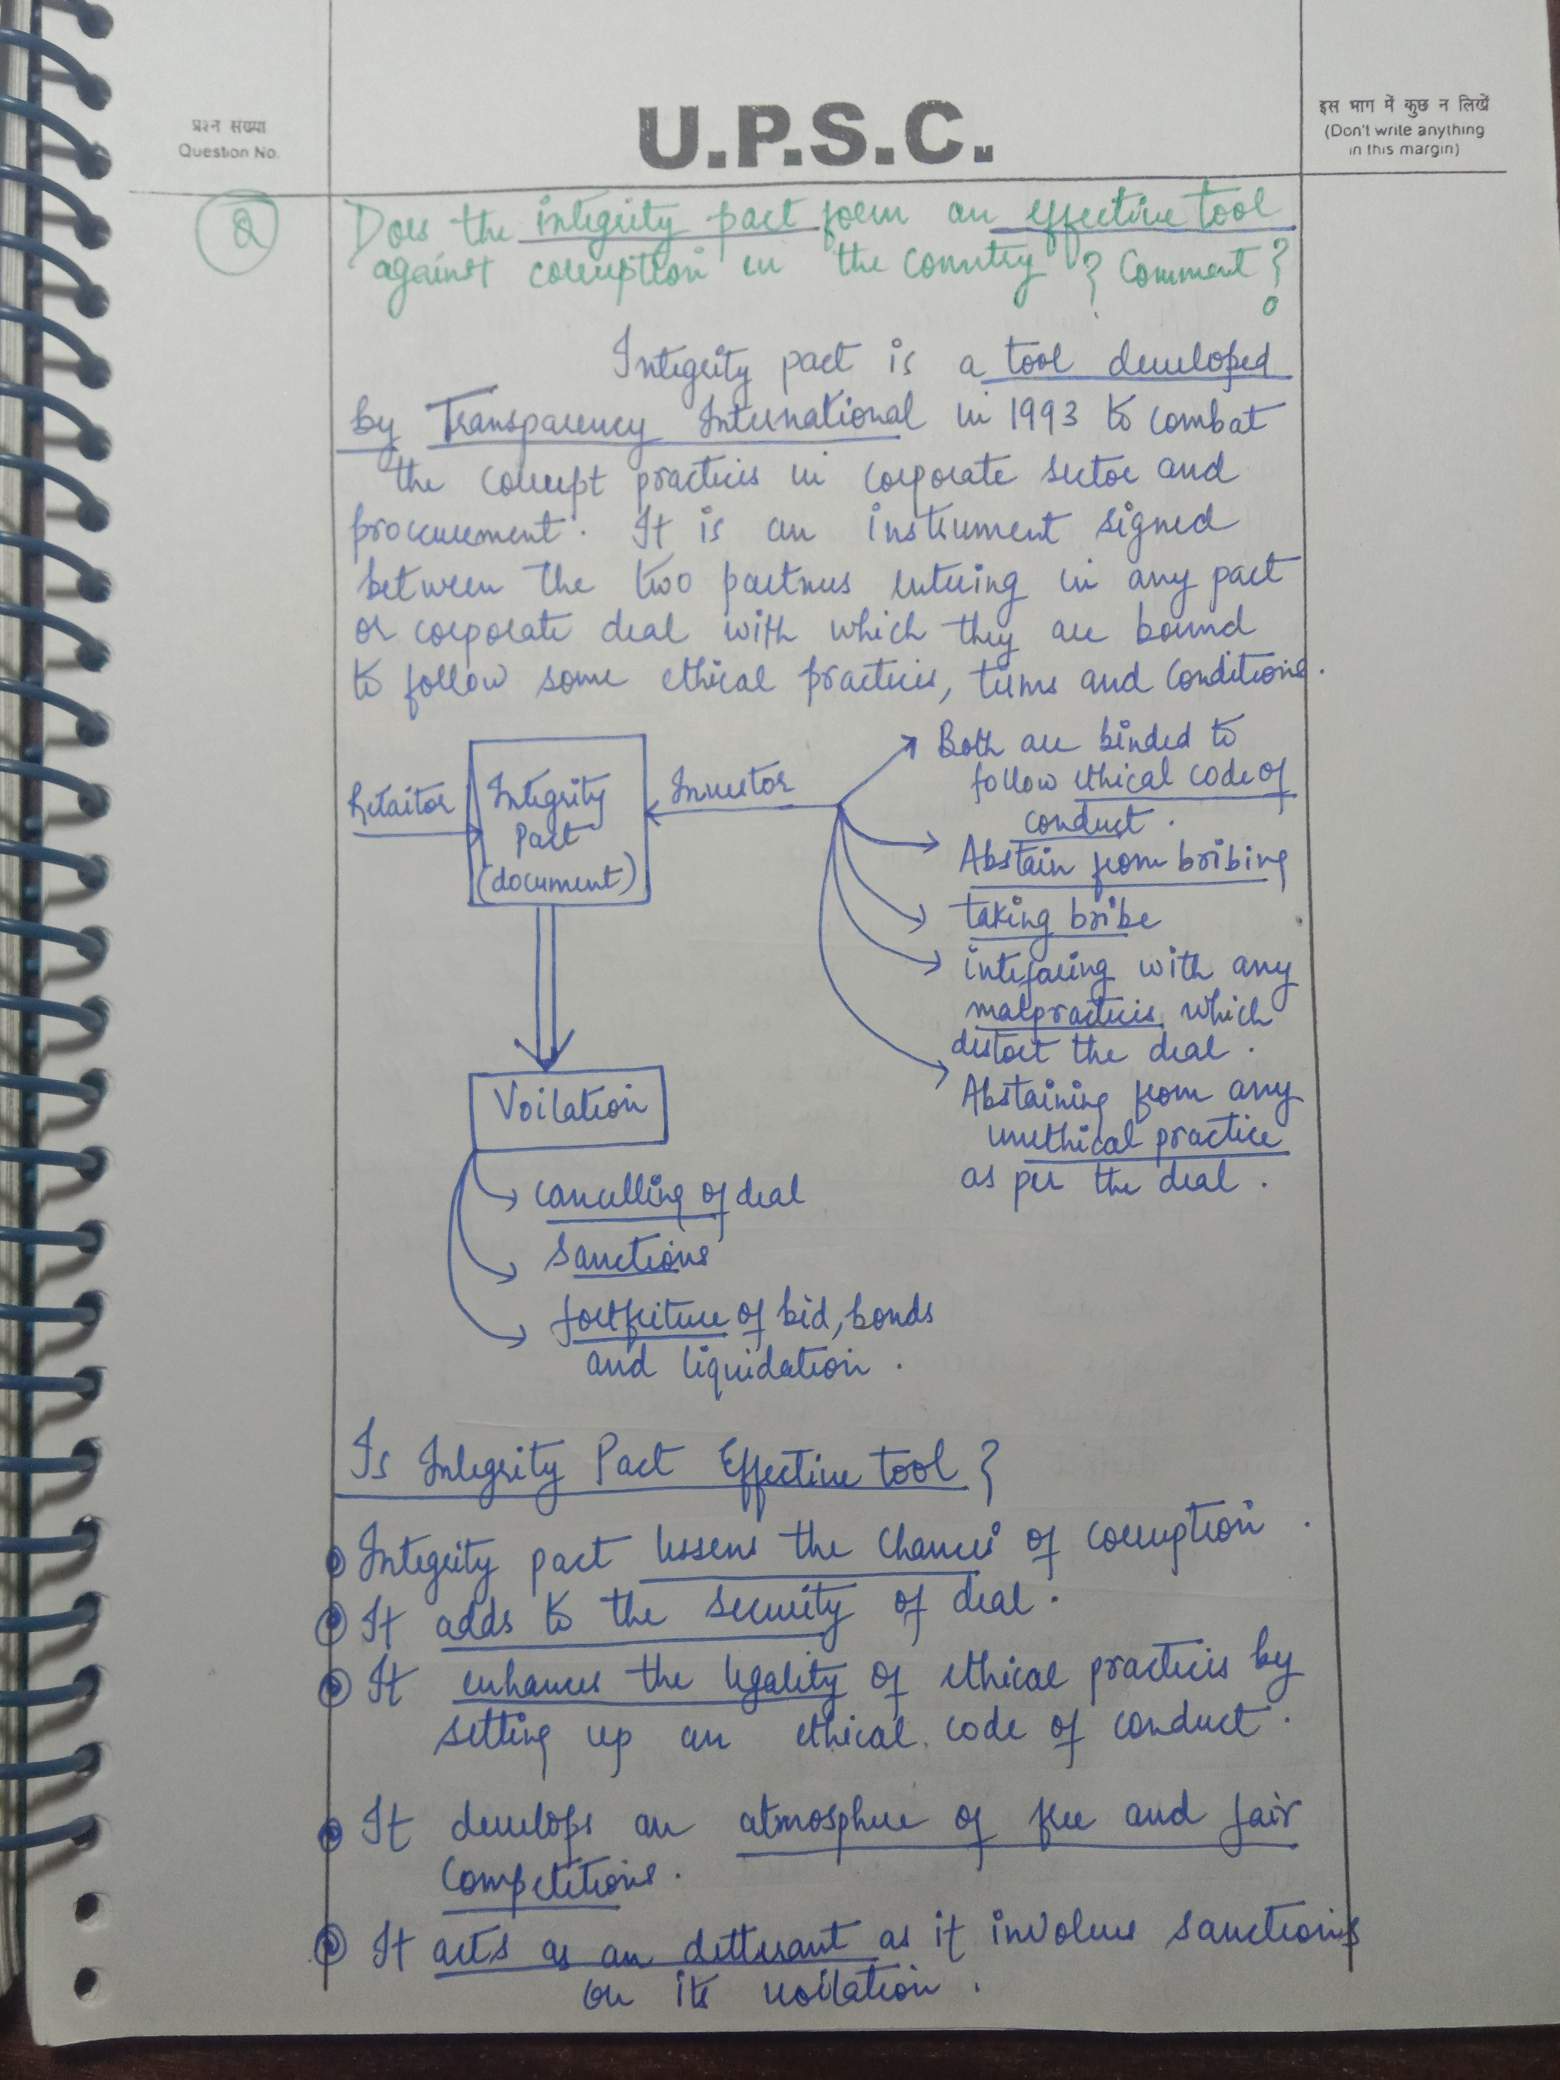 प्रश्न संख्या
Question No.
U.P.S.C.
इस भाग में कुछ न लिखें
(Don't write anything
in this margin)
Q
Does the integrity pact form an effective tool
against corruption in the country? Comment?
Integrity pact is a tool developed
by Transparency International in 1993 to combat
the corrupt practices in corporate sector and
proccurement. It is an instrument signed
between the two partners entering in any pact
or corporate deal with which they are bound
to follow some ethical practices, terms and conditions.
Integrity
Pact
(document)
Investor
Both are binded to
follow ethical code of
conduct.
Abstain from bribing
taking bribe
with any
malpractices which
distort the deal.
Abstaining from any
unethical practice
as per the deal.
Voilation
cancelling of deal
Sanctions
of bid, bonds
and liquidation.
Is Integrity Pact Effective tool?
Integrity pact lessens the chances of corruption.
It adds to the security of deal.
It enhances the legality of ethical practices by
setting up an ethical code of conduct.
It develops an atmosphere of free and fair
competitions.
It acts as an detterant as it involves sanctions
on its voilation.